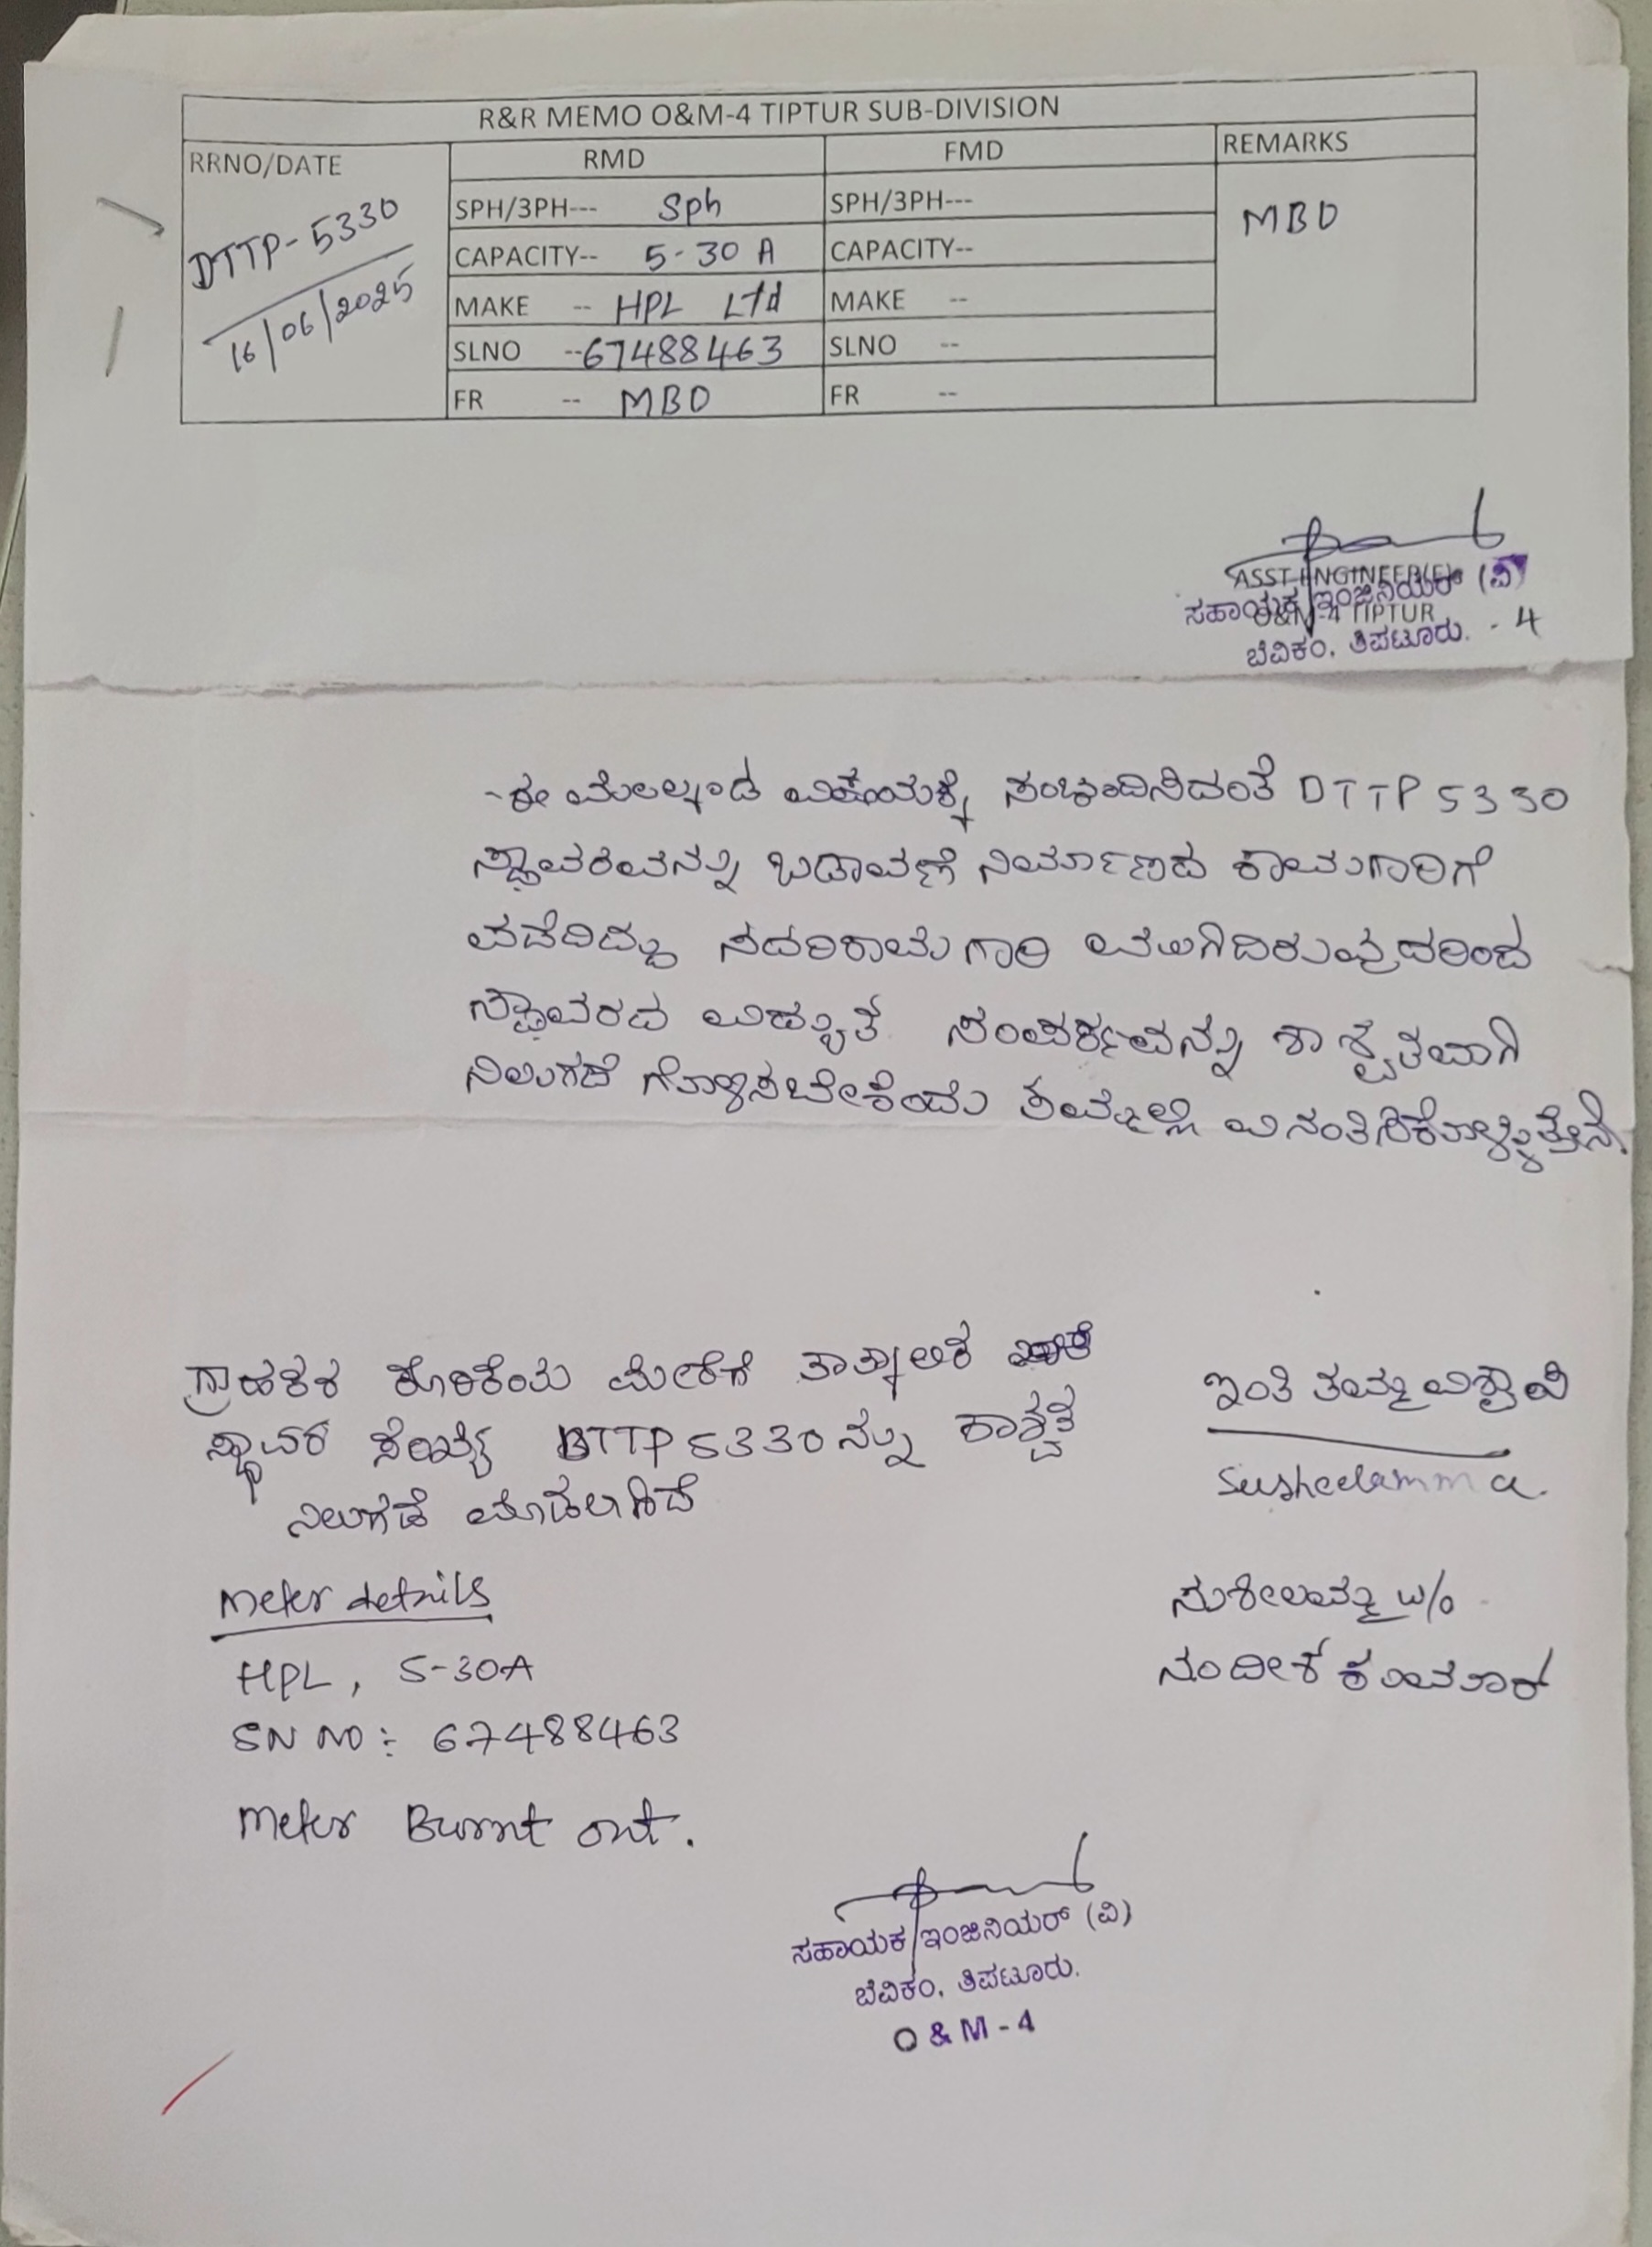 R&R MEMO O&M-4 TIPTUR SUB-DIVISION
RRNO/DATE RMD FMD REMARKS
DTTP-5330
16/06/2025
SPH/3PH--- Sph SPH/3PH--- MBO
CAPACITY-- 5-30 A CAPACITY--
MAKE -- HPL Ltd MAKE --
SLNO --67488463 SLNO --
FR -- MBO FR --
ASST ENGINEER(E)
O&M-4 TIPTUR
ಸಹಾಯಕ ಇಂಜಿನಿಯರ್ (ವಿ)
ಬೆವಿಕಂ, ತಿಪಟೂರು. - 4
ಈ ಮೇಲ್ಕಂಡ ವಿಷಯಕ್ಕೆ DTTP 5330
ಸ್ಥಾವರವನ್ನು ಬಡಾವಣೆ ನಿರ್ಮಾಣದ ಕಾಮಗಾರಿಗೆ
ಪಡೆದಿದ್ದು ಸದರಿ ಕಾಮಗಾರಿ ಮುಗಿದಿರುವುದರಿಂದ
ಸ್ಥಾವರದ ವಿದ್ಯುತ್ ಸಂಪರ್ಕವನ್ನು ಶಾಶ್ವತವಾಗಿ
ನಿಲುಗಡೆ ಗೊಳಿಸಬೇಕೆಂದು ತಮ್ಮಲ್ಲಿ ವಿನಂತಿಸಿಕೊಳ್ಳುತ್ತೇನೆ.
ಗ್ರಾಹಕರ ಕೋರಿಕೆಯ ಮೇರೆಗೆ ತಾತ್ಕಾಲಿಕ
ಸ್ಥಾವರ ಸಂಖ್ಯೆ DTTP 5330 ನ್ನು ಶಾಶ್ವತ
ನಿಲುಗಡೆ ಮಾಡಲಾಗಿದೆ
ಇಂತಿ ತಮ್ಮ ವಿಶ್ವಾಸಿ
Susheelamma.
Meter details
HPL, 5-30A
SN NO: 67488463
Meter Burnt out.
ಸುಶೀಲಮ್ಮ w/o
ನಂದೀಶ ಕುಮಾರ್
ಸಹಾಯಕ ಇಂಜಿನಿಯರ್ (ವಿ)
ಬೆವಿಕಂ, ತಿಪಟೂರು.
O & M - 4